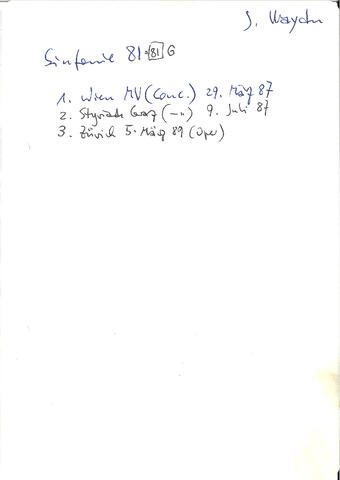 J. Haydn
Sinfonie 81 81 G
1. Wien MV (Conc.) 29. März 87
2. Styriarte Graz (-"-) 9. Juli 87
3. Zürich 5. März 89 (Oper)